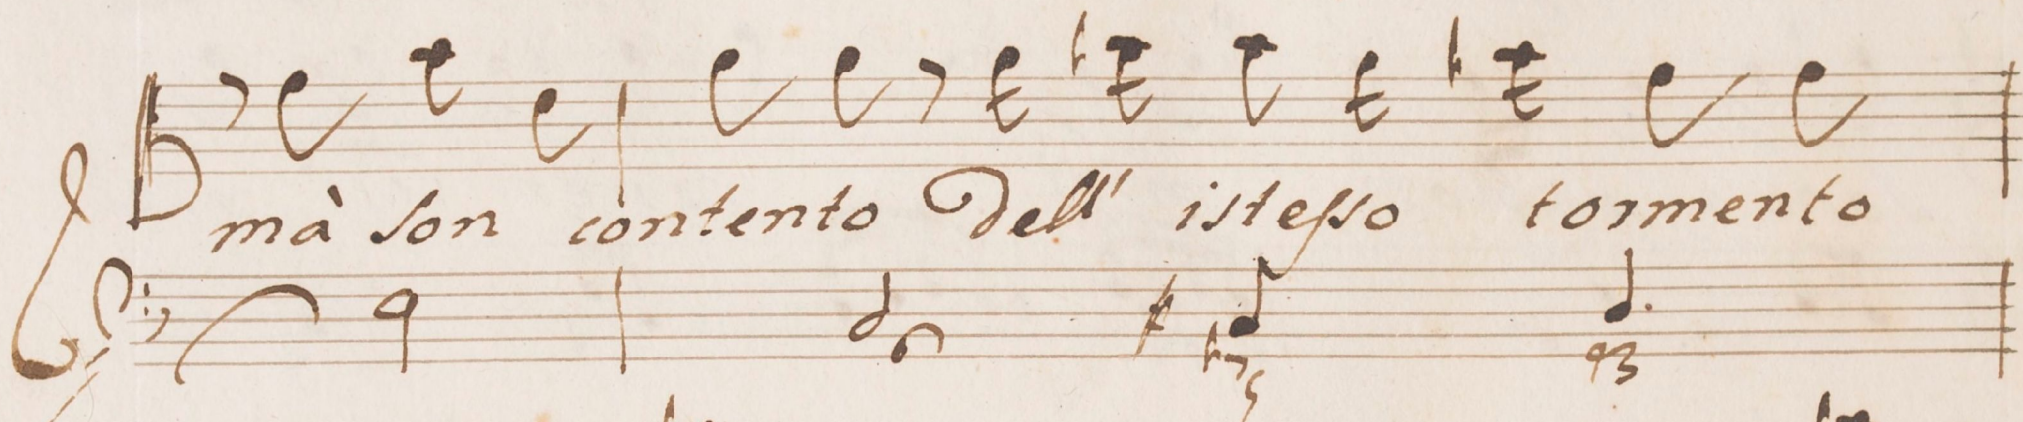 mà son contento dell' istesso tormento
6
♮7 5
43